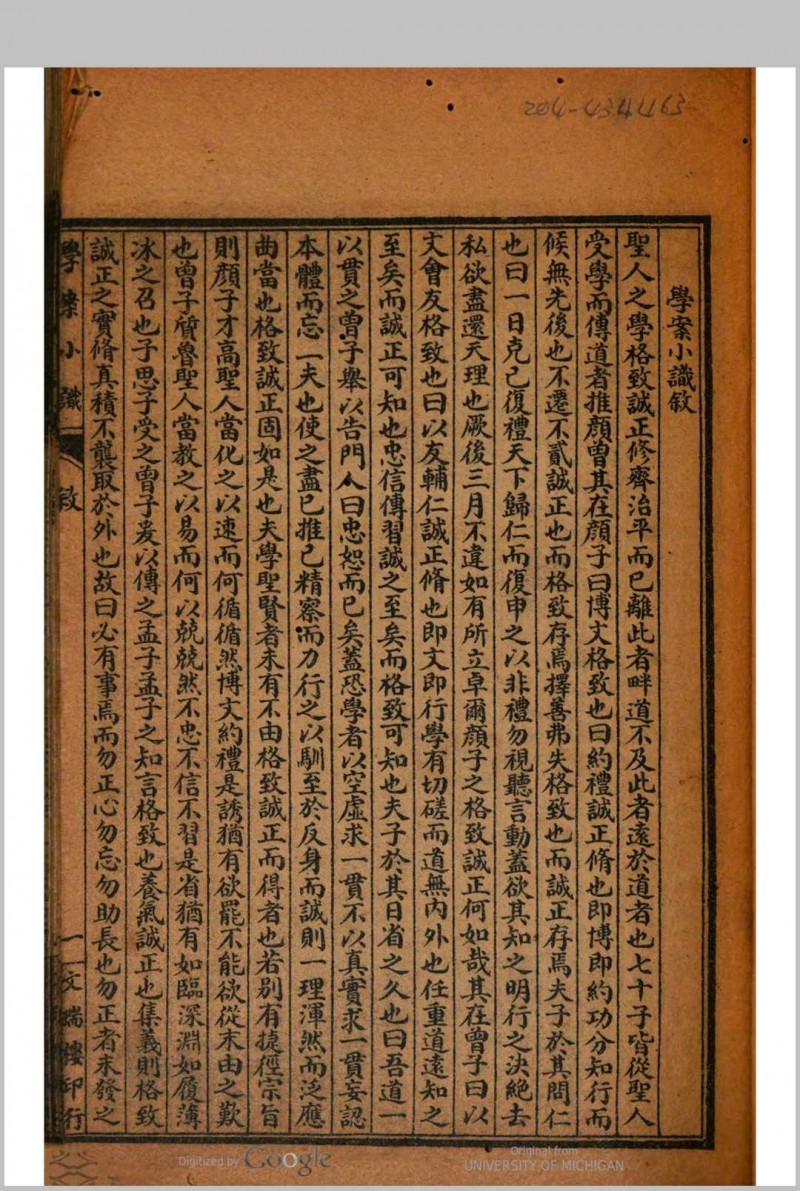 204-434463
學案小識敘
聖人之學格致誠正修齊治平而已離此者畔道不及此者遠於道者也七十子皆從聖人
受學而傳道者推顏曾其在顏子曰博文格致也曰約禮誠正脩也即博即約功分知行而
候無先後也不遷不貳誠正也而格致存焉擇善弗失格致也而誠正存焉夫子於其問仁
也曰一日克己復禮天下歸仁而復申之以非禮勿視聽言動蓋欲其知之明行之決絕去
私欲盡還天理也厥後三月不違如有所立卓爾顏子之格致誠正何如哉其在曾子曰以
文會友格致也曰以友輔仁誠正脩也即文即行學有切磋而道無內外也任重道遠知之
至矣而誠正可知也忠信傳習誠之至矣而格致可知也夫子於其日省之久也曰吾道一
以貫之曾子舉以告門人曰忠恕而已矣蓋恐學者以空虛求一貫不以真實求一貫妄認
本體而忘一夫也使之盡己推己精察而力行之以馴至於反身而誠則一理渾然而泛應
曲當也格致誠正固如是也夫學聖賢者未有不由格致誠正而得者也若別有捷徑宗旨
則顏子才高聖人當化之以速而何循循然博文約禮是誘猶有欲罷不能欲從末由之歎
也曾子質魯聖人當教之以易而何以兢兢然不忠不信不習是省猶有如臨深淵如履薄
冰之召也子思子受之曾子爰以傳之孟子孟子之知言格致也養氣誠正也集義則格致
誠正之實脩真積不襲取於外也故曰必有事焉而勿正心勿忘勿助長也勿正者未發之
學案小識
敘
一
文瑞樓印行
Digitized by Google
Original from
UNIVERSITY OF MICHIGAN